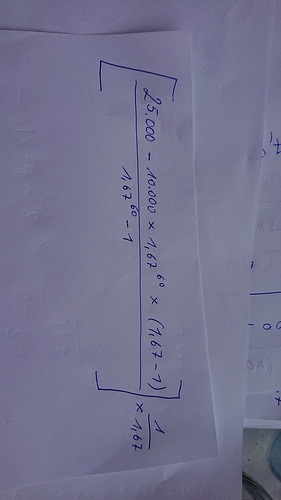 [ 25.000 - 10.000 × 1,67^60 × (1,67 - 1) ] 1
1,67^60 - 1 × 1,67